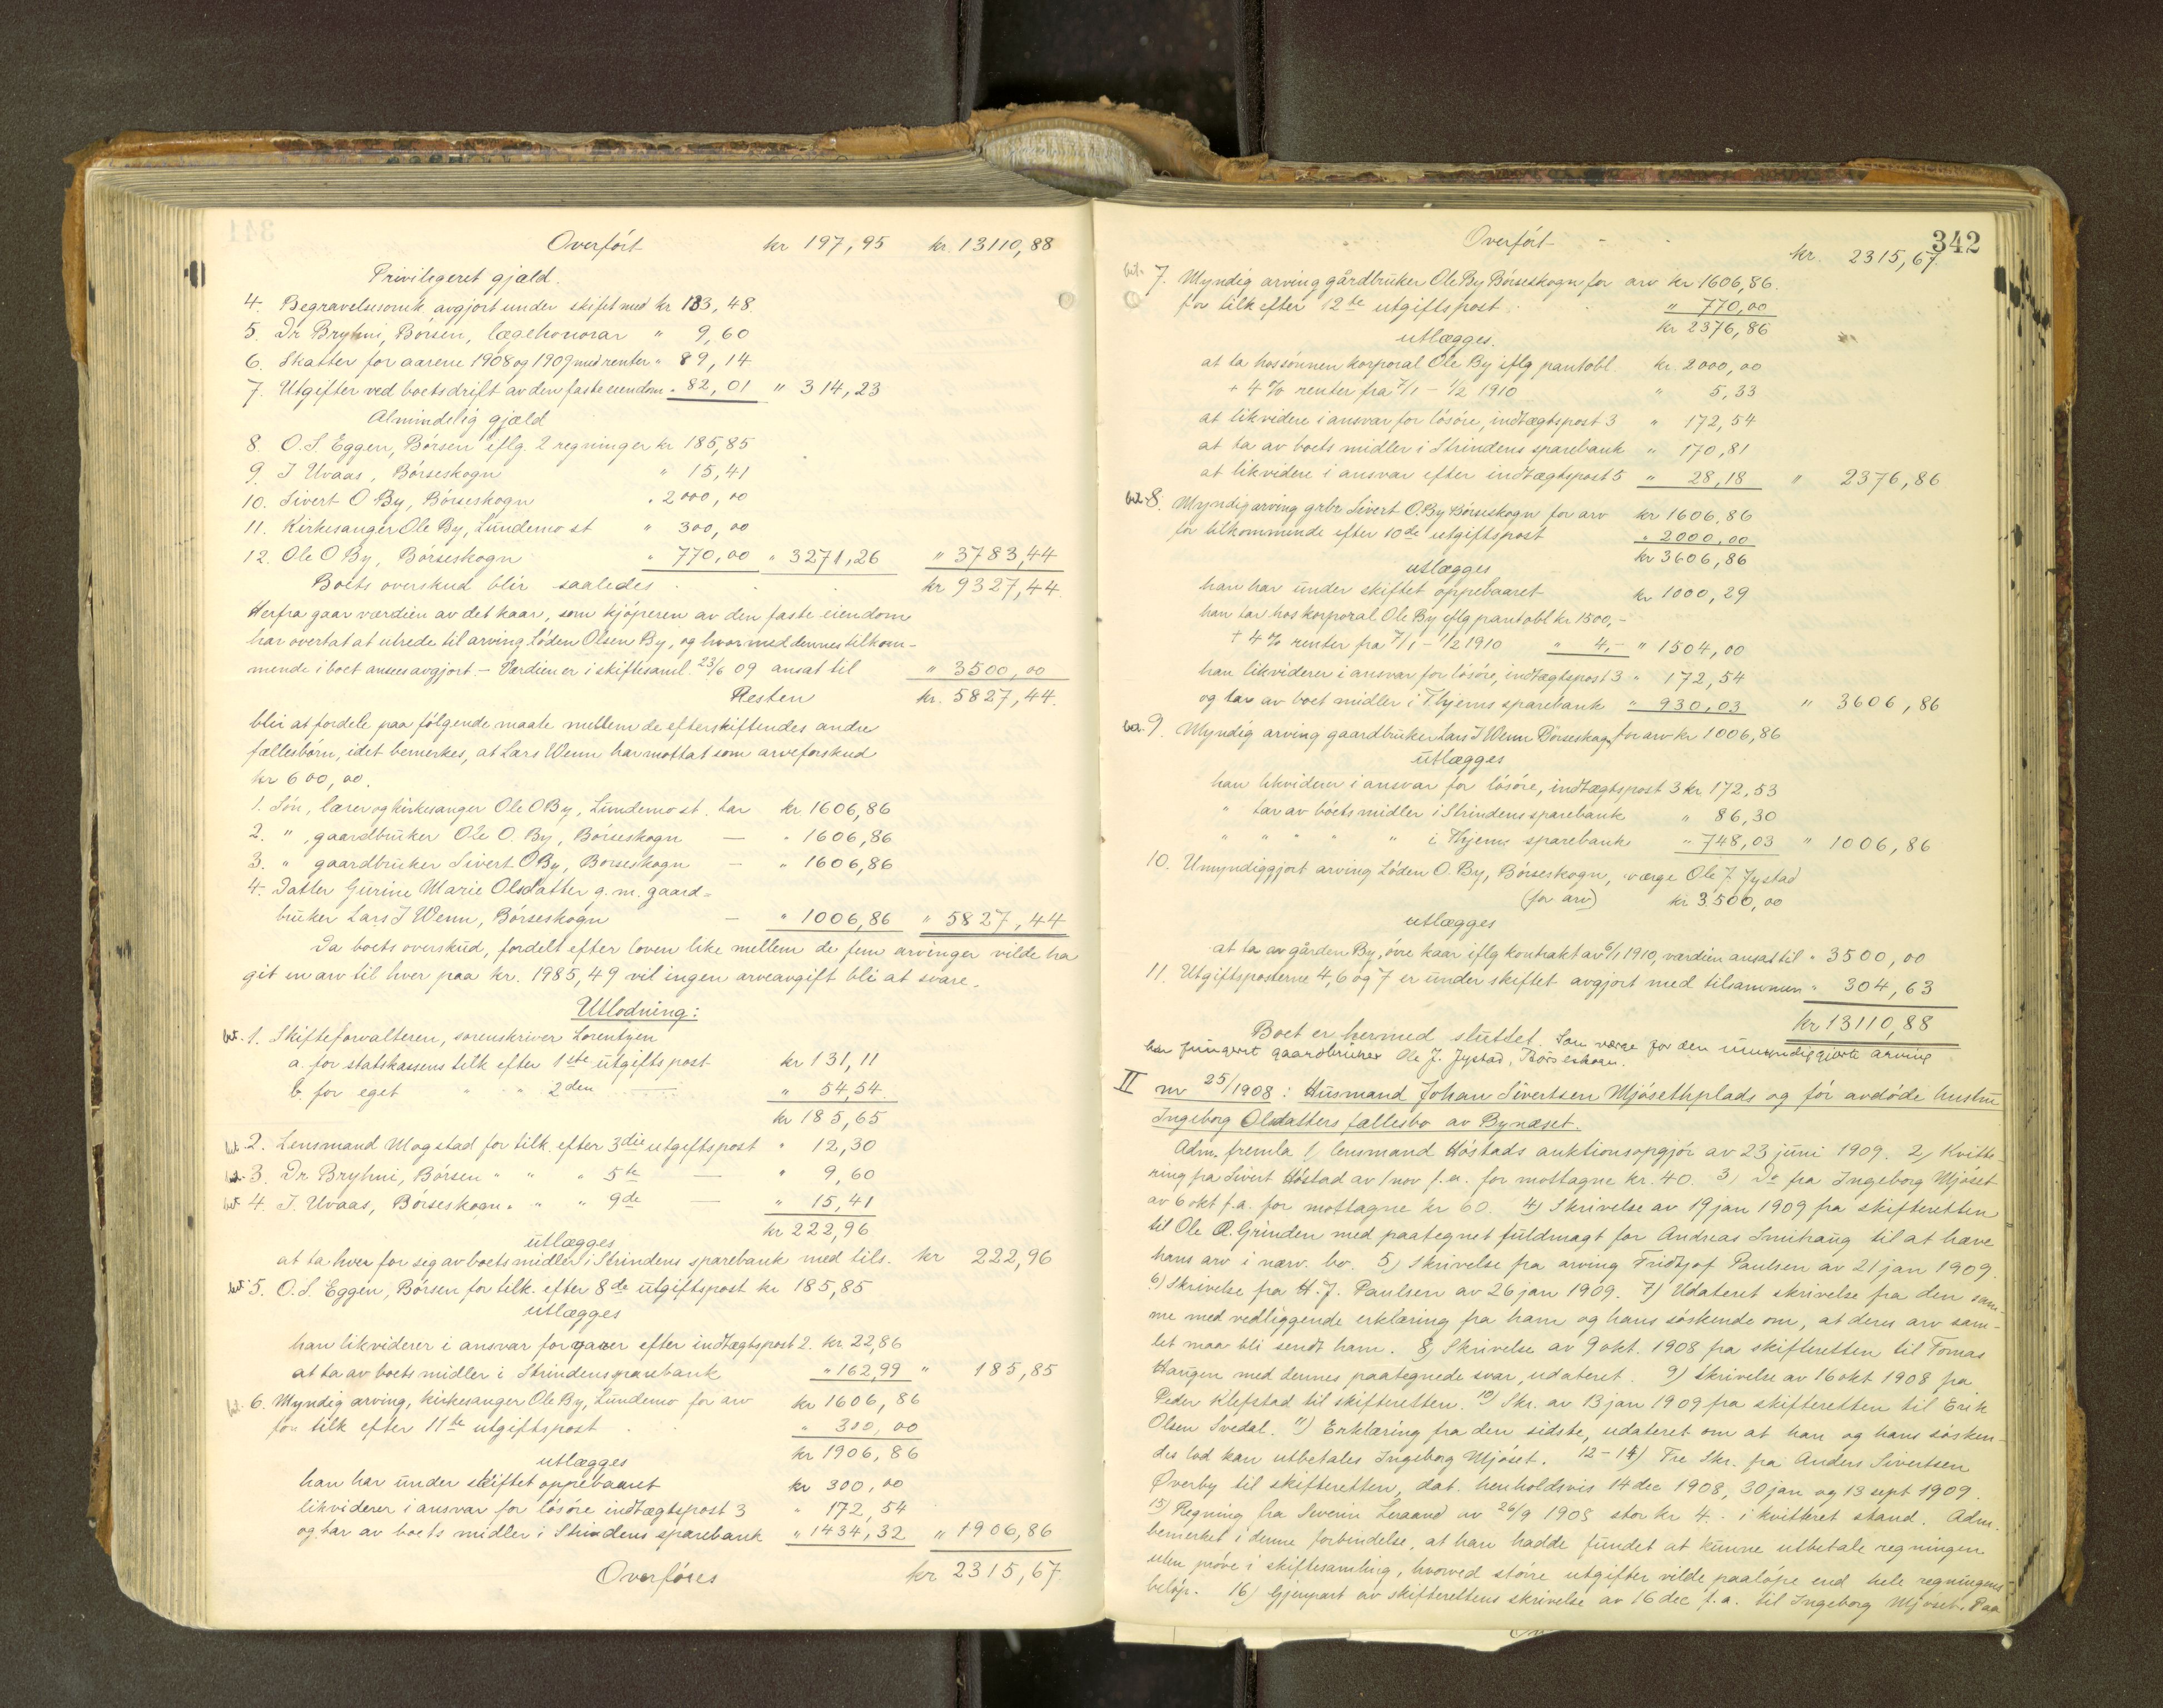 Overført kr 197,95 kr. 13110,88
Privilegeret gjæld.
4. Begravelsesomk. avgjort under skiftet med kr 133,48.
5. Dr Bryhni, Børsen, lægehonorar " 9,60
6. Skatter for aarene 1908 og 1909 med renter " 89,14
7. Utgifter ved boets drift av den faste eiendom " 82,01 " 314,23
Almindelig gjæld
8. O. S. Eggen, Børsen iflg. 2 regninger kr 185,85
9. J Uvaas, Børseskogn " 15,41
10. Sivert O By, Børseskogn " 2000,00
11. Kirkesanger Ole By, Lundemo st " 300,00
12. Ole O By, Børseskogn " 770,00 " 3271,26 " 3783,44
Boets overskud blir saaledes kr 9327,44.
Herfra gaar værdien av det kaar, som kjøperen av den faste eiendom
har overtat at utrede til arving Løden Olsen By, og hvormed dennes tilkom-
mende i boet ansees avgjort. – Værdien er i skiftesaml. 23/6 09 ansat til " 3500,00
Resten kr. 5827,44.
blir at fordele paa følgende maate mellem de efterskiftendes andre
fællesbørn, idet bemerkes, at Lars Wenn har mottat som arveforskud
kr 600,00.
1. Søn, lærer og kirkesanger Ole O By, Lundemo st. tar kr 1606,86
2. " , gaardbruker Ole O. By, Børseskogn — " 1606,86
3. " gaardbruker Sivert O By, Børseskogn — " 1606,86
4. Datter Gurine Marie Olsdatter g. m. gaard-
bruker Lars J Wenn, Børseskogn — " 1006,86 " 5827,44
Da boets overskud, fordelt efter loven like mellem de fem arvinger vilde ha
git en arv til hver paa kr. 1985,49 vil ingen arveavgift bli at svare.
Utlodning:
bet. 1. Skifteforvalteren, sorenskriver Lorentzen
a. for statskassens tilk efter 1ste utgiftspost kr 131,11
b. for eget " " 2den — " 54,54
kr 185,65
bet. 2. Lensmand Mogstad for tilk. efter 3die utgiftspost " 12,30
bet. 3. Dr Bryhni, Børsen " " " 5te — " 9,60
bet. 4. J. Uvaas, Børseskogn " " " 9de — " 15,41
kr 222,96
utlægges
at ta hver for sig av boets midler i Strindens sparebank med tils. kr 222,96
bet. 5. O. S. Eggen, Børsen for tilk. efter 8de utgiftspost kr 185,85
utlægges
han likviderer i ansvar for varer efter indtægtspost 2. kr. 22,86
at ta av boets midler i Strindens sparebank " 162,99 " 185,85
bet. 6. Myndig arving, kirkesanger Ole By, Lundemo for arv kr 1606,86
for tilk efter 11te utgiftspost " 300,00
kr 1906,86
utlægges
han har under skiftet oppebaaret kr 300,00
likviderer i ansvar for løsøre indtægtspost 3 " 172,54
og tar av boets midler i Strindens sparebank " 1434,32 " 1906,86
Overføres kr 2315,67.
342
Overført kr. 2315,67.
bet. 7. Myndig arving gårdbruker Ole By Børseskogn for arv kr 1606,86.
for tilk efter 12te utgiftspost " 770,00
kr 2376,86
utlægges.
at ta hos sønnen korporal Ole By iflg pantobl. kr. 2000,00
+ 4 % renter fra 7/1 – 1/2 1910 " 5,33
at likvidere i ansvar for løsøre, indtægtspost 3 " 172,54
at ta av boets midler i Strindens sparebank " 170,81
at likvidere i ansvar efter indtægtspost 5 " 28,18 " 2376,86
bet. 8. Myndig arving grbr Sivert O. By Børseskogn for arv kr 1606,86
for tilkommende efter 10de utgiftspost " 2000,00
kr 3606,86
utlægges
han har under skiftet oppebaaret kr 1000,29
han tar hos korporal Ole By iflg pantobl kr 1500,-
+ 4 % renter fra 7/1 – 1/2 1910 " 4,- " 1504,00
han likviderer i ansvar for løsøre, indtægtspost 3 " 172,54
og tar av boet midler i Thjems sparebank " 930,03 " 3606,86
bet. 9. Myndig arving gaardbruker Lars J Wenn Børseskogn for arv kr 1006,86
utlægges
han likviderer i ansvar for løsøre, indtægtspost 3 kr. 172,53
" tar av boets midler i Strindens sparebank " 86,30
" " " " " i Thjems sparebank " 748,03 " 1006,86
10. Umyndiggjort arving Løden O. By, Børseskogn, værge Ole J. Jystad
(for arv) kr 3.500,00
utlægges
at ta av gården By, øvre kaar iflg kontrakt av 6/1 1910, værdien ansat til " 3500,00
11. Utgiftsposterne 4, 6 og 7 er under skiftet avgjort med tilsammen " 304,63
kr 13110,88
Boet er hermed sluttet. Som værge for den umyndiggjorte arving
har fungert gaardbruker Ole J. Jystad, Børseskogn.
II nr 25/1908: Husmand Johan Sivertsen Mjøsethplads og før avdøde hustru
Ingeborg Olsdatters fællesbo av Bynæset.
Adm. fremla 1) lensmand Høstads auktionsopgjør av 23 juni 1909. 2) Kvitte-
ring fra Sivert Høstad av 1 nov f.a. for mottagne kr. 40. 3) Do fra Ingeborg Mjøset
av 6 okt f.a. for mottagne kr 60. 4) Skrivelse av 19 jan 1909 fra skifteretten
til Ole O. Grinden med paategnet fuldmagt for Andreas Smihaug til at hæve
hans arv i nærv. bo. 5) Skrivelse fra arving Fridtjof Paulsen av 21 jan 1909.
6) Skrivelse fra H. J. Paulsen av 26 jan 1909. 7) Udateret skrivelse fra den sam-
me med vedliggende erklæring fra ham og hans søskende om, at deres arv sam-
let maa bli sendt ham. 8) Skrivelse av 9 okt. 1908 fra skifteretten til Tomas
Haugen med dennes paategnede svar, udateret. 9) Skrivelse av 16 okt 1908 fra
Peder Klefstad til skifteretten. 10) Skr. av 13 jan 1909 fra skifteretten til Erik
Olsen Svedal. 11) Erklæring fra den sidste, udateret om at han og hans søsken-
des lod kan utbetales Ingeborg Mjøset. 12–14) Tre Skr. fra Anders Sivertsen
Øverby til skifteretten, dat. henholdsvis 14 dec 1908, 30 jan og 13 sept 1909.
15) Regning fra Severin Leraand av 26/9 1908 stor kr 4.- i kvitteret stand. Adm.
bemerket i denne forbindelse, at han hadde fundet at kunne utbetale regningen
uten prøve i skiftesamling, hvorved større utgifter vilde paaløpe end hele regningens
beløp. 16) Gjenpart av skifterettens skrivelse av 16 dec f.a. til Ingeborg Mjøset. Paa